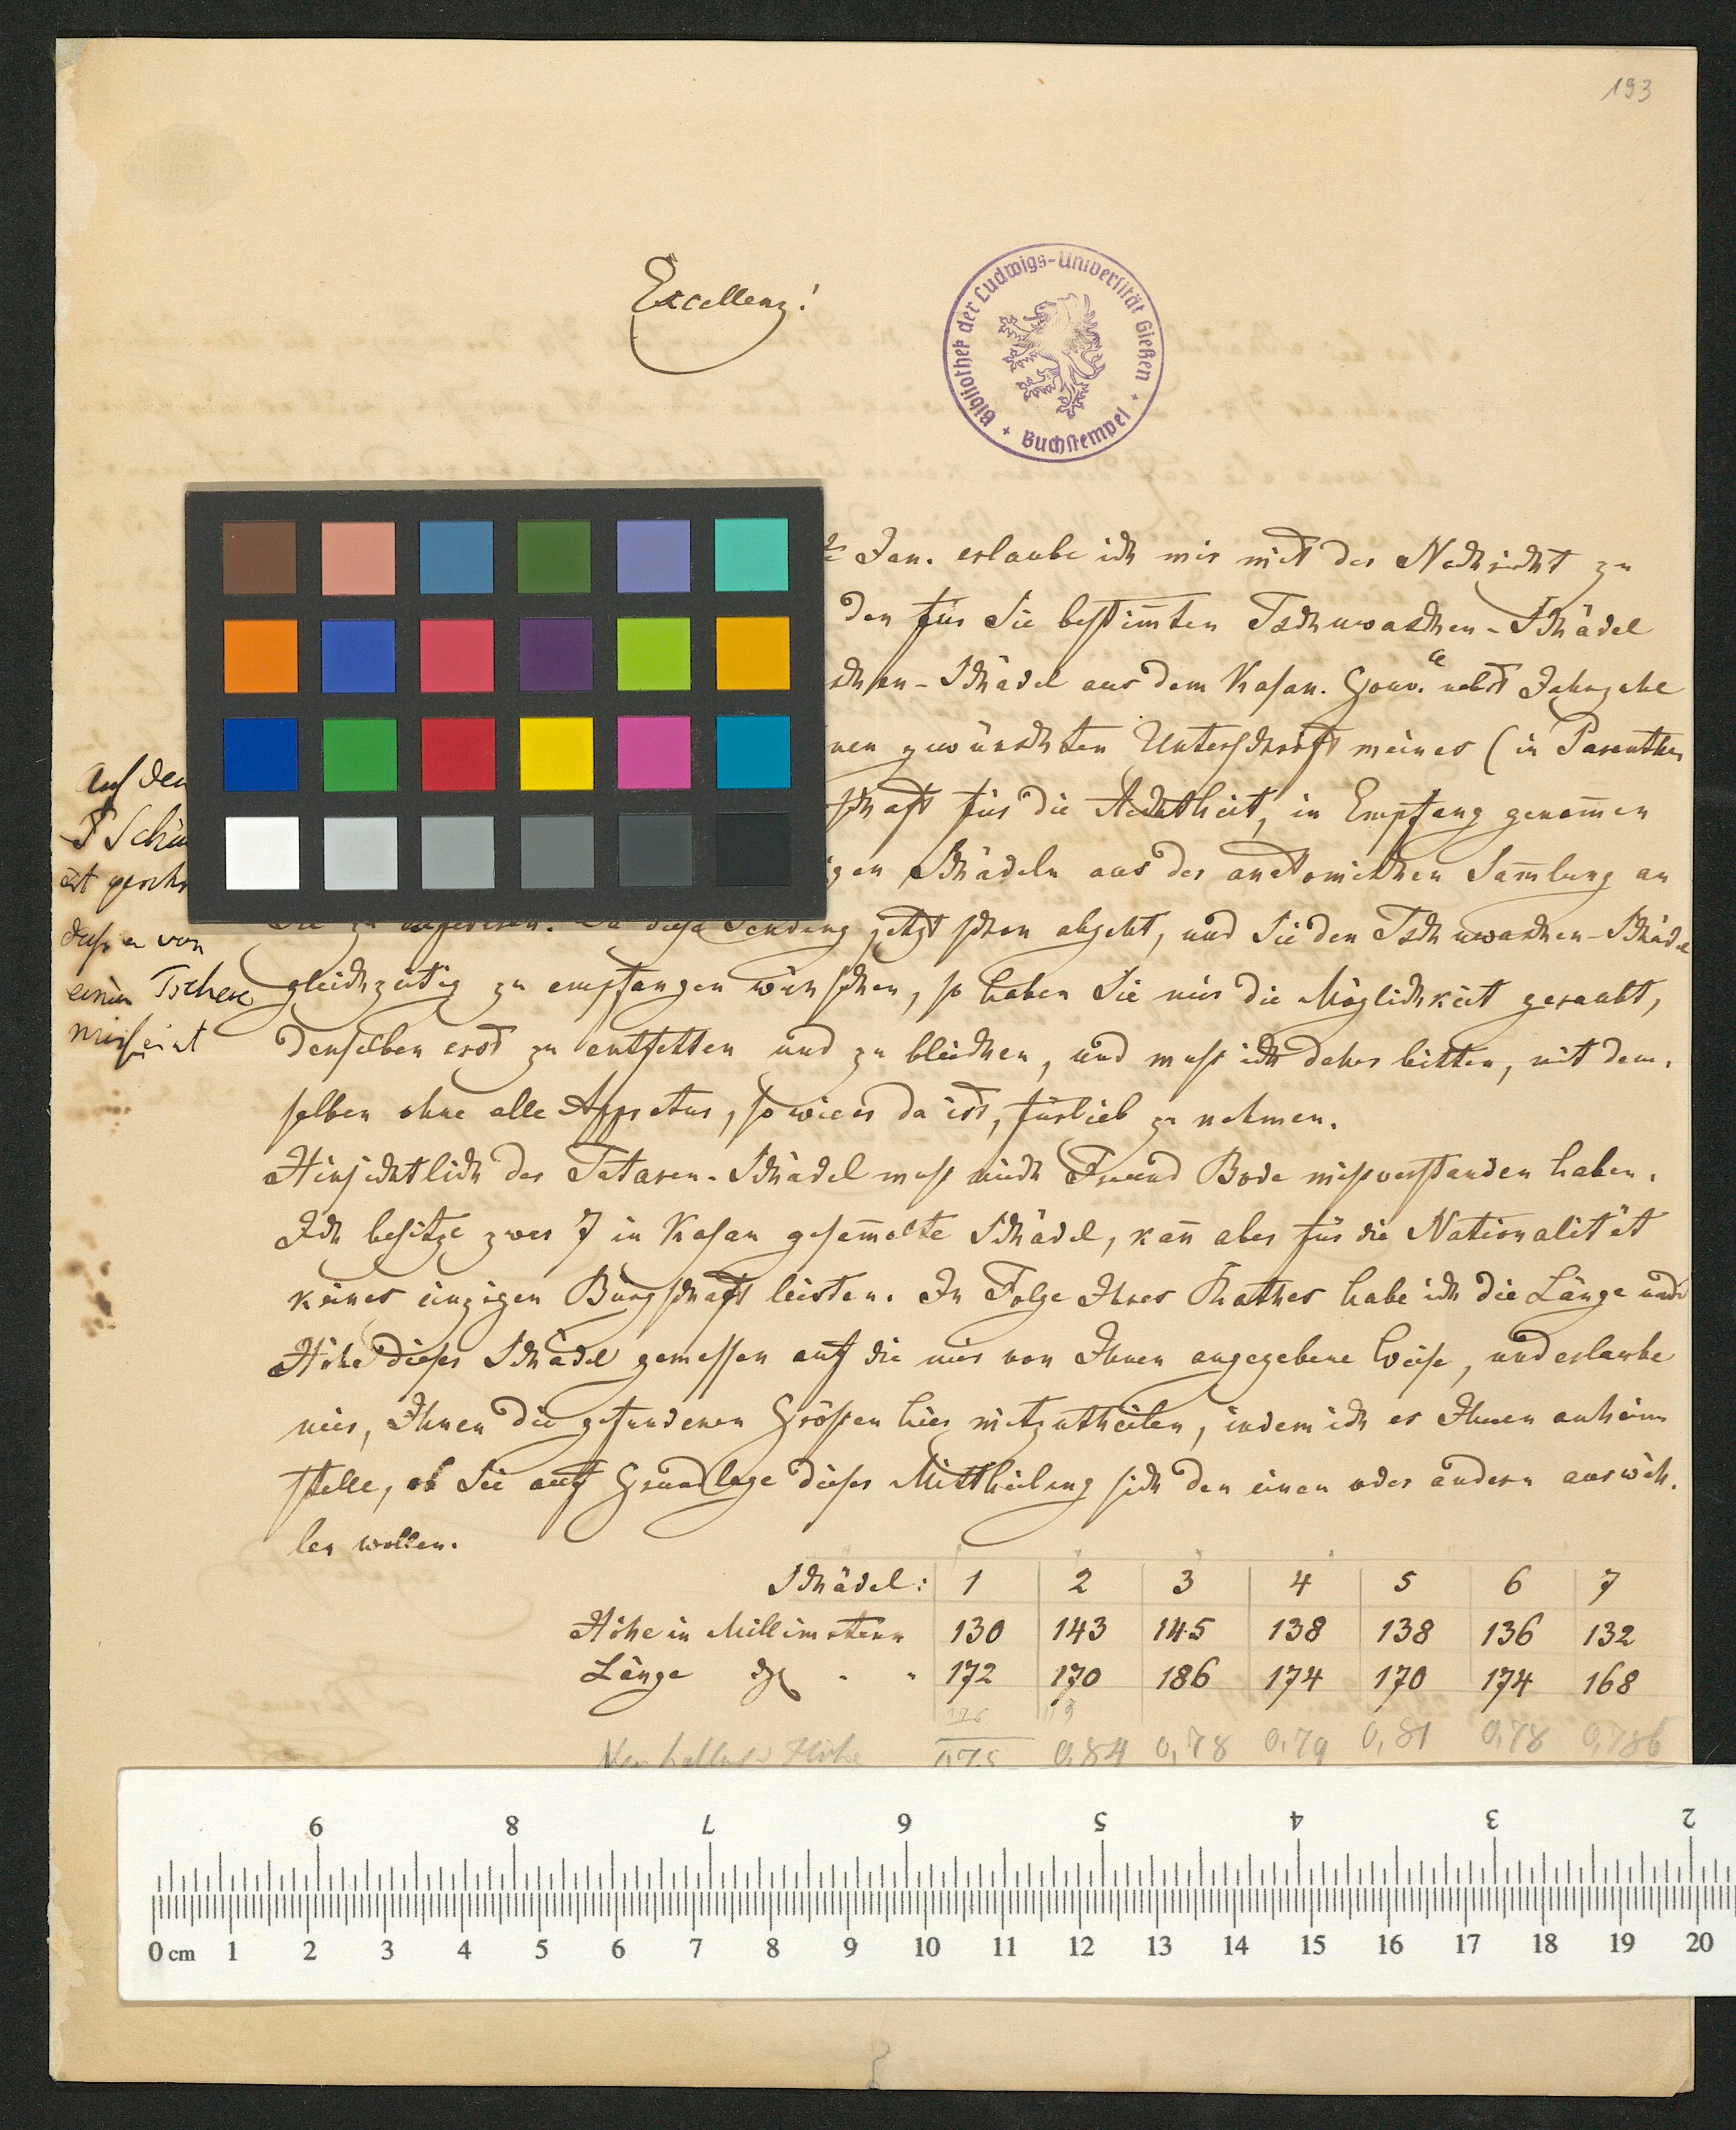 193
Excellenz!
Bibliothek der Ludwigs-Universität Gießen
+ Buchstempel +
Jan. erlaube ich mir mit der Nachricht zu
den für Sie bestim̄ten Tschuwaschen-Schädel
Schädel aus dem Kasan. Gouv. nebst
gewünschten Unterschrift meines (in Parenthes
für die Aechtheit, in Empfang genom̄en
Schädeln aus der anatomischen Sam̄lung an
Sie zu Da diese Sendung jetzt schon abgeht, und Sie den Tschuwaschen-Schädel
gleichzeitig zu empfangen wünschen, so haben Sie mir die Möglichkeit geraubt,
denselben erst zu entfetten und zu bleichen, und muß ich daher bitten, mit dem-
selben ohne alle Appretur, so wie er da ist, fürlieb zu nehmen.
Hinsichtlich der Tataren-Schädel muß mich Freund Bode mißverstanden haben.
Ich besitze zwar 7 in Kasan gesam̄elte Schädel, kan̄ aber für die Nationalität
keines einzigen Bürgschaft leisten. In Folge Ihres Rathes habe ich die Länge und
Höhe dieser Schädel gemessen auf die mir von Ihnen angegebene Weise, und erlaube
mir, Ihnen die gefundenen Größen hier mitzutheilen, indem ich es Ihnen anheim
stelle, ob Sie auf Grundlage dieser Mittheilung sich den einen oder andern auswäh-
len wollen.
Schädel: 1 2 3 4 5 6 7
Höhe in Millimetern 130 143 145 138 138 136 132
Länge 172 170 186 174 170 174 168
Höhe 0,75 0,84 0,78 0,79 0,81 0,78 0,786
Auf dem
ist
daß er von
einem
9 8 7 6 5 4 3 2
0 cm 1 2 3 4 5 6 7 8 9 10 11 12 13 14 15 16 17 18 19 20